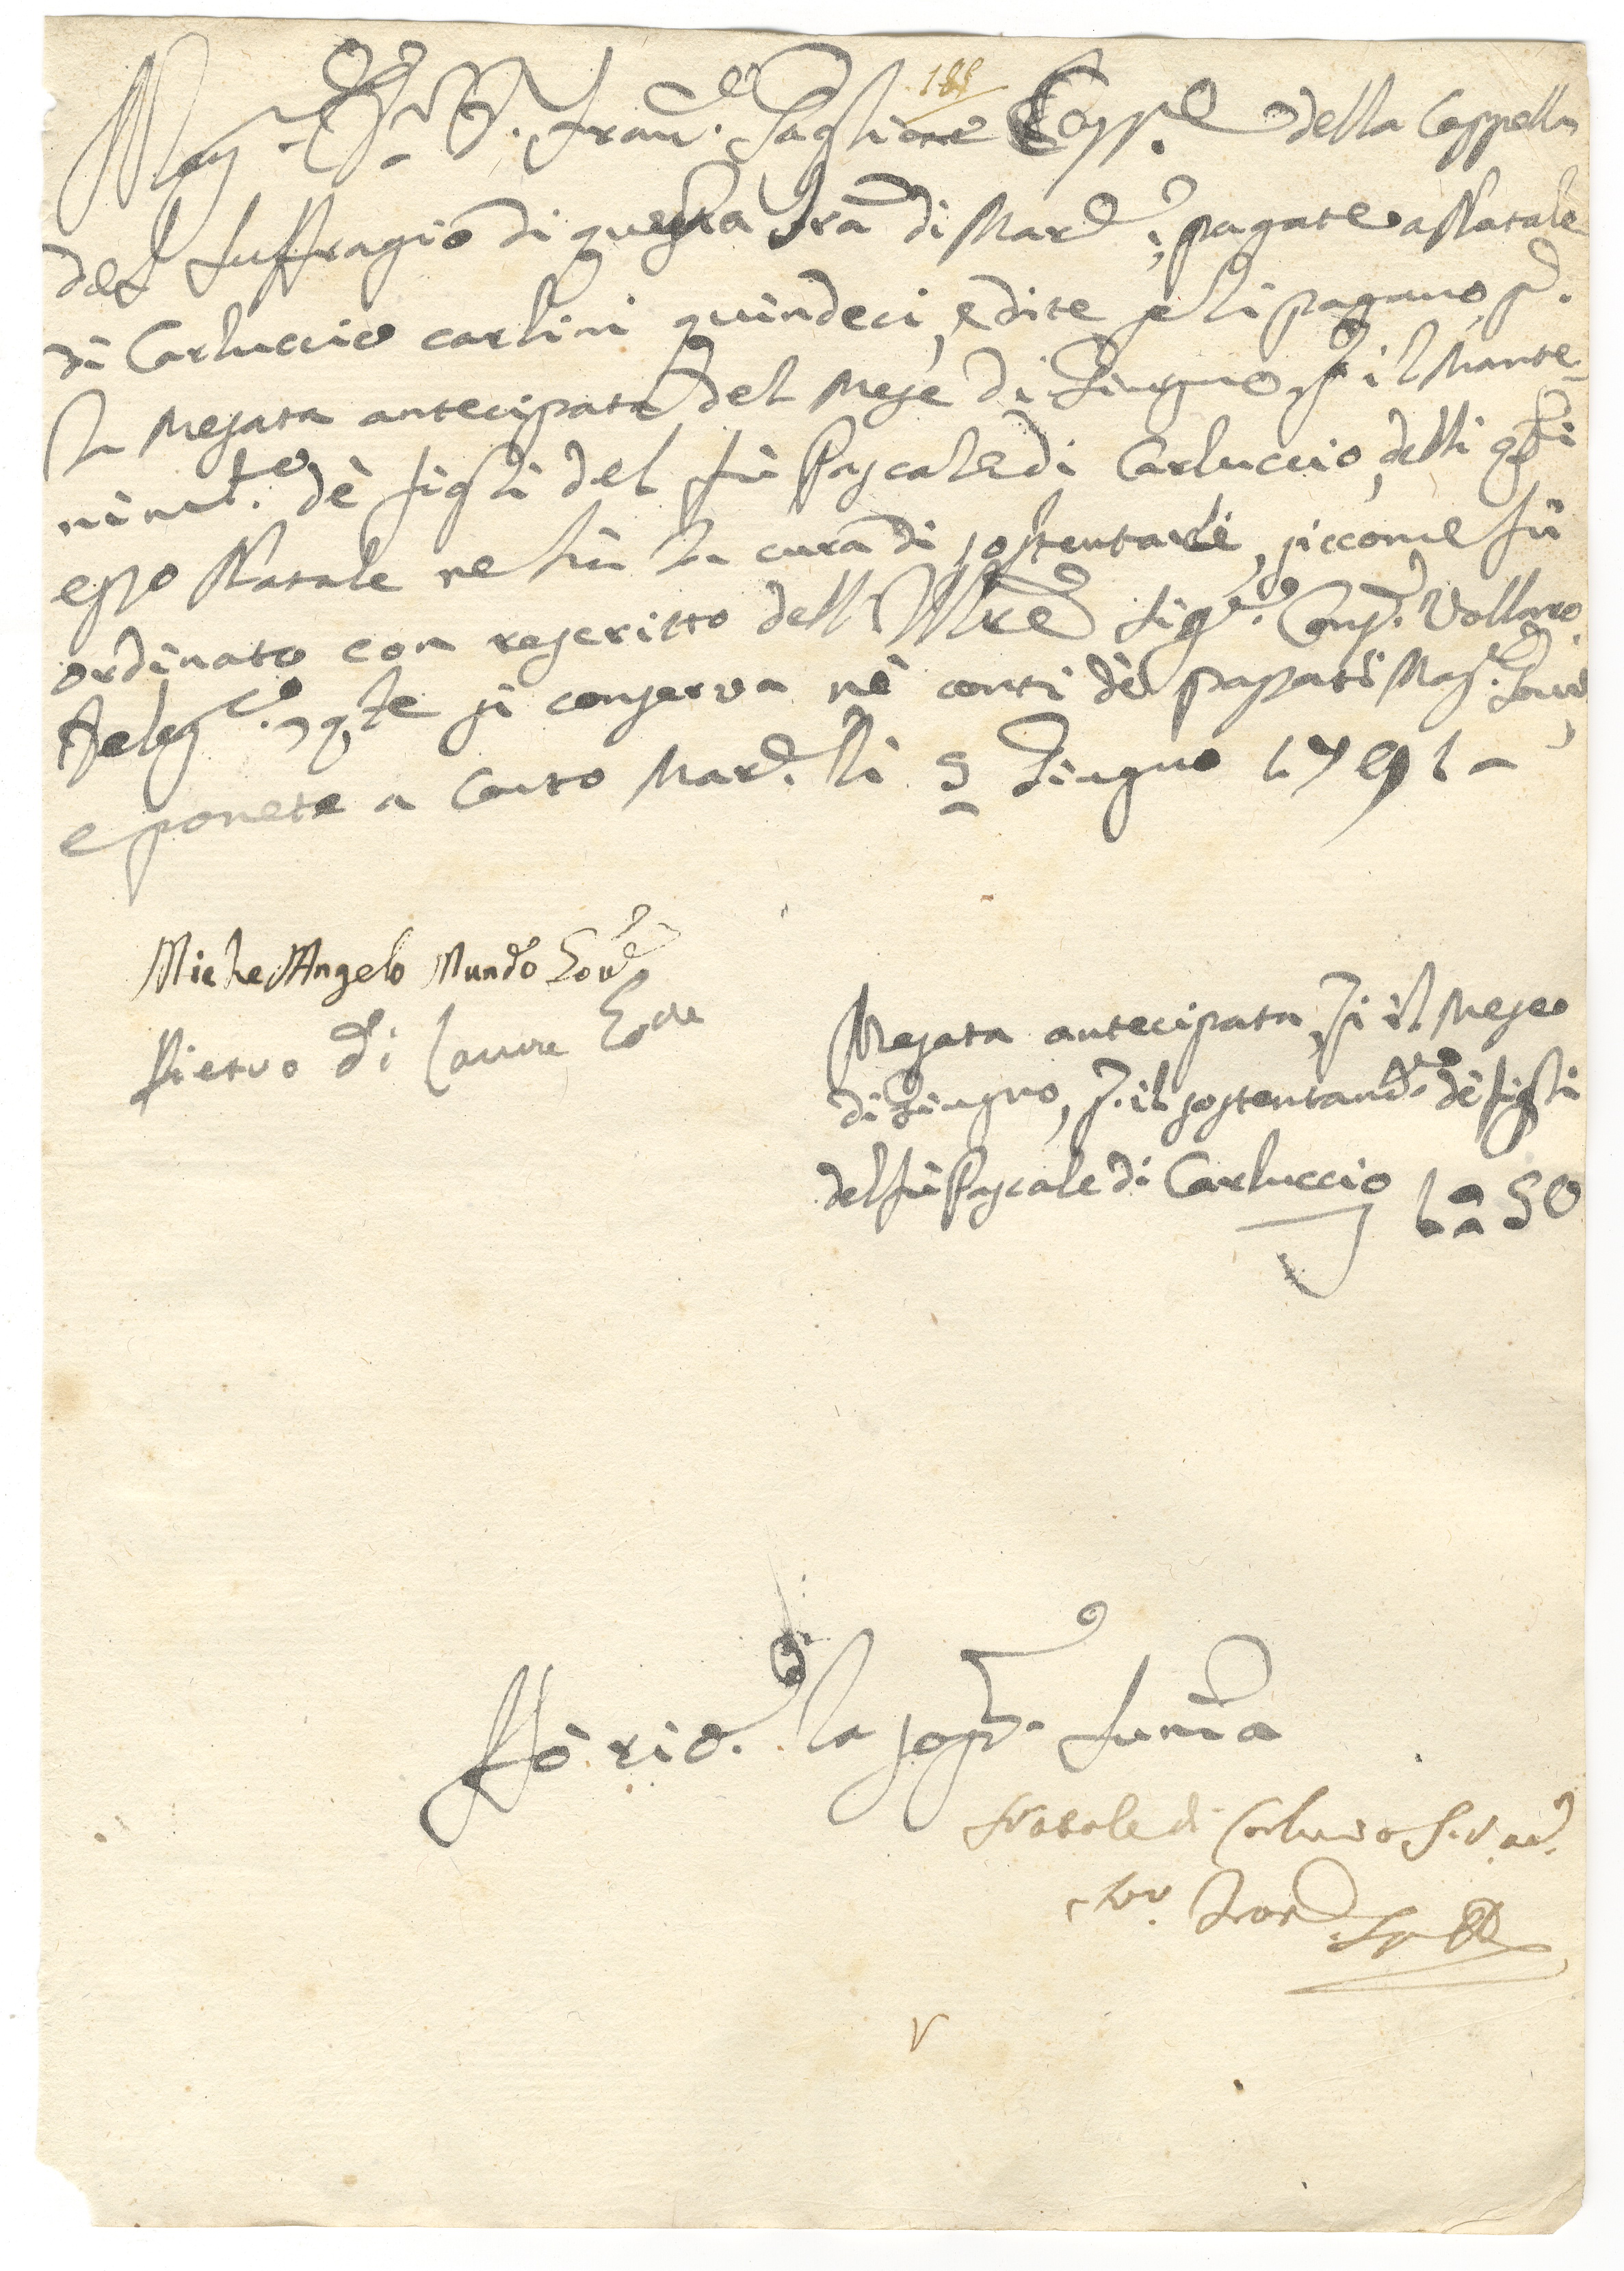 188
Mag.co Fran.co Taglione Capp.e della Cappella
del Suffragio di questa Trã di Mard.i, pagate a Natale
di Carluccio carlini quindeci, e dite se li pagano p.
la Mesata antecipata del Mese di Giugno p il Mante-
nim.to dè figli del fù Pascale di Carluccio, delli qli
esso Natale ne hà la cura di sostentarli, siccome fù
ordinato con reseritto dell'Ill.re Sig.r Conf.e Vollaro
Deleg.to, q.le si conserva nè conti dè passati Mag.ci
e ponete a conto Mard. li 5 Giugno 1791 -
MicheAngelo Mundo
Pietro di
Mesata antecipata, p il Mese
di Giugno, p. il sostentam.to dè figli
del fù Pascale di Carluccio 1=50
Hò ric.to la sop.a summa
Natale di Carluccio